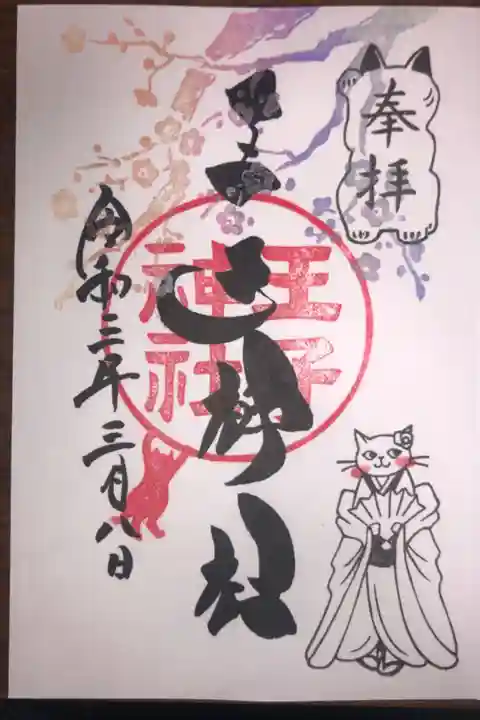 奉拝
神社
王子
神社
令和二年三月八日